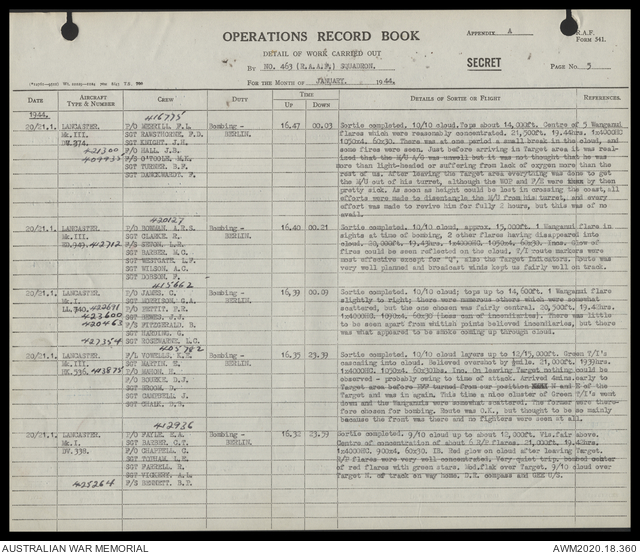 OPERATIONS RECORD BOOK
APPENDIX A
R.A.F. FORM 541.
DETAIL OF WORK CARRIED OUT
SECRET
BY NO. 463 (R.A.A.F.) SQUADRON.
PAGE No. 5
FOR THE MONTH OF JANUARY. 1944.
DATE AIRCRAFT TYPE & NUMBER CREW DUTY TIME UP DOWN DETAILS OF SORTIE OR FLIGHT REFERENCES.
1944.
416775
20/21.1. LANCASTER. P/O MERRILL, F.L. Bombing - 16.47 00.03 Sortie completed. 10/10 cloud. Tops about 14,000ft. Centre of 5 Wanganui
Mk.III. SGT HAWTHORNE, F.D. BERLIN. flares which were reasonably concentrated. 21,500ft. 19.44hrs. 1x4000HC
SGT KNIGHT, J.H. 1050x4. 60x30. There was at one period a small break in the cloud, and
421300 P/O HALL, J.B. some fires were seen. Just before arriving in Target area it was real-
409935 F/S O'TOOLE, M.K. ized that the R/U A/G was unwell but it was not thought that he was
SGT TURNER, R.F. more than light-headed or suffering from lack of oxygen more than the
rest of us. After leaving the Target area everything was done to get
the R/U out of his turret, although the WOP and F/E were then by then
pretty sick. As soon as height could be lost in crossing the coast, all
efforts were made to disentangle the R/U from his turret, and every
effort was made to revive him for fully 2 hours, but this was of no
avail.
420127
20/21.1. LANCASTER. Bombing - 16.40 00.21 Sortie completed. 10/10 cloud, approx. 15,000ft. 1 Wanganui flare in
Mk.III. BERLIN. sights at time of bombing, 2 other flares having disappeared into
412712 cloud. 20,000ft. 19.43hrs. 1x4000HC. 1050x4. 60x30. Incs. Glow of
SGT BARNES, M.C. fires could be seen reflected on the cloud. T/I route markers were
SGT WESTGATE, L.F. most effective except for "Q", also the Target Indicators. Route was
SGT WILSON, A.C. very well planned and broadcast winds kept us fairly well on track.
SGT DOBSON, F.
415662
20/21.1. LANCASTER. P/O JAMES, C. Bombing - 16.39 00.03 Sortie completed. 10/10 cloud; tops up to 14,600ft. 1 Wanganui flare
Mk.I. SGT MORRISON, G.A. BERLIN. slightly to right; there were numerous others which were somewhat
LL.740. 422691 P/O PETTIT, F.R. scattered, but the one chosen was fairly central. 20,500ft. 19.40hrs.
423600
420463 F/S FITZGERALD, B. to be seen apart from whitish points believed incendiaries, but there
SGT HARDING, G. was what appeared to be smoke coming up through cloud.
427354 SGT ROSEWARNE, L.C.
405782
20/21.1. LANCASTER. F/L VOWELLS, K.E. Bombing - 16.35 23.39 Sortie completed. 10/10 cloud layers up to 12/15,000ft. Green T/I's
Mk.III. SGT MARTIN, E. BERLIN. cascading into cloud. Believed overshot by ½ mile. 21,000ft. 1939hrs.
413875 1x4000HC. 1050x4. 60x30lbs. Inc. On leaving Target nothing could be
observed - probably owing to time of attack. Arrived 4mins. early to
SGT BROOM, D. Target area before turned from our position N and E of the
SGT CAMPBELL, J. Target and was in again. This time a nice cluster of Green T/I's went
down and the Wanganuis were somewhat scattered. The former were there-
fore chosen for bombing. Route was O.K., but thought to be so mainly
because the front was there and no fighters were seen at all.
412936
20/21.1. LANCASTER. P/O FAYLE, E.A. Bombing - 16.32 23.59 Sortie completed. 9/10 cloud up to 12,000ft. Vis. fair above.
Mk.I. SGT BARBER, C.T. BERLIN. Centre of concentration of about 6 R/P flares. 21,000ft. 19.42hrs.
DV.338. P/O CHAPPELL, G. 1x4000HC. 900x4, 60x30. IB. Red glow on cloud after leaving Target.
SGT TOPHAM, L.E. R/P flares were very well concentrated. Very quiet trip. bombed
SGT FARRELL, R. of red flares with green stars. Mod. flak over Target. 9/10 cloud over
SGT VICKERY, A.L. Target N. of track on way home. D.R. compass and GEE U/S.
425264 F/S BENNETT, R.F.
AUSTRALIAN WAR MEMORIAL
AWM2020.18.360